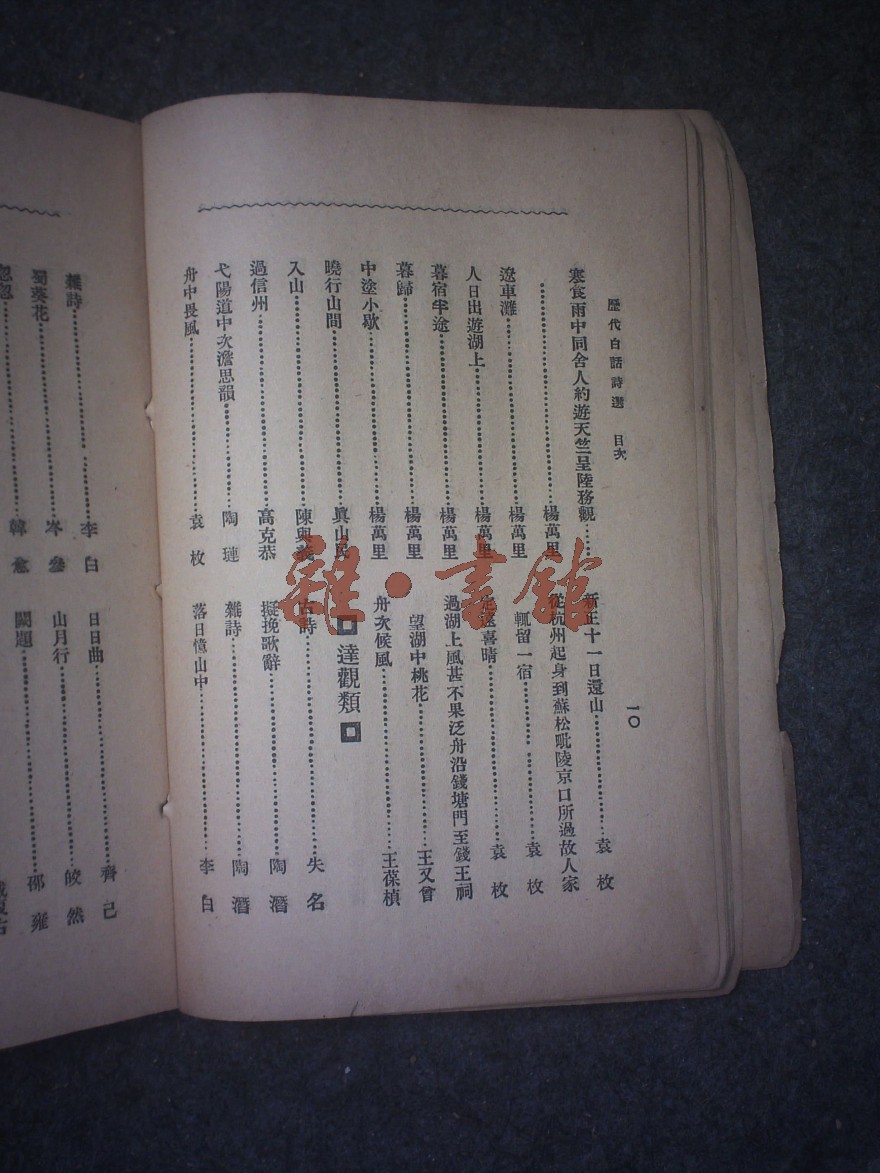 歷代白話詩選　目次
一〇
寒食雨中同舍人約遊天竺呈陸務觀……
……楊萬里
遼車灘……楊萬里
人日出遊湖上……楊萬里
暮宿半途……楊萬里
暮歸……楊萬里
中塗小歇……楊萬里
曉行山間……眞山民
入山……陳與義
過信州……高克恭
弋陽道中次澹思韻……陶璉
舟中長風……袁枚
新正十一日還山……袁枚
從杭州起身到蘇松毗陵京口所過故人家
輒留一宿……袁枚
遠喜晴……袁枚
過湖上風甚不果泛舟沿錢塘門至錢王祠
望湖中桃花……王又曾
舟次候風……王葆楨
達觀類
古詩……失名
擬挽歌辭……陶潛
雜詩……陶潛
落日憶山中……李白
雜詩……李白
蜀葵花……岑參
忽忽……韓愈
日日曲……齊己
山月行……皎然
闕題……邵雍
雜·書館